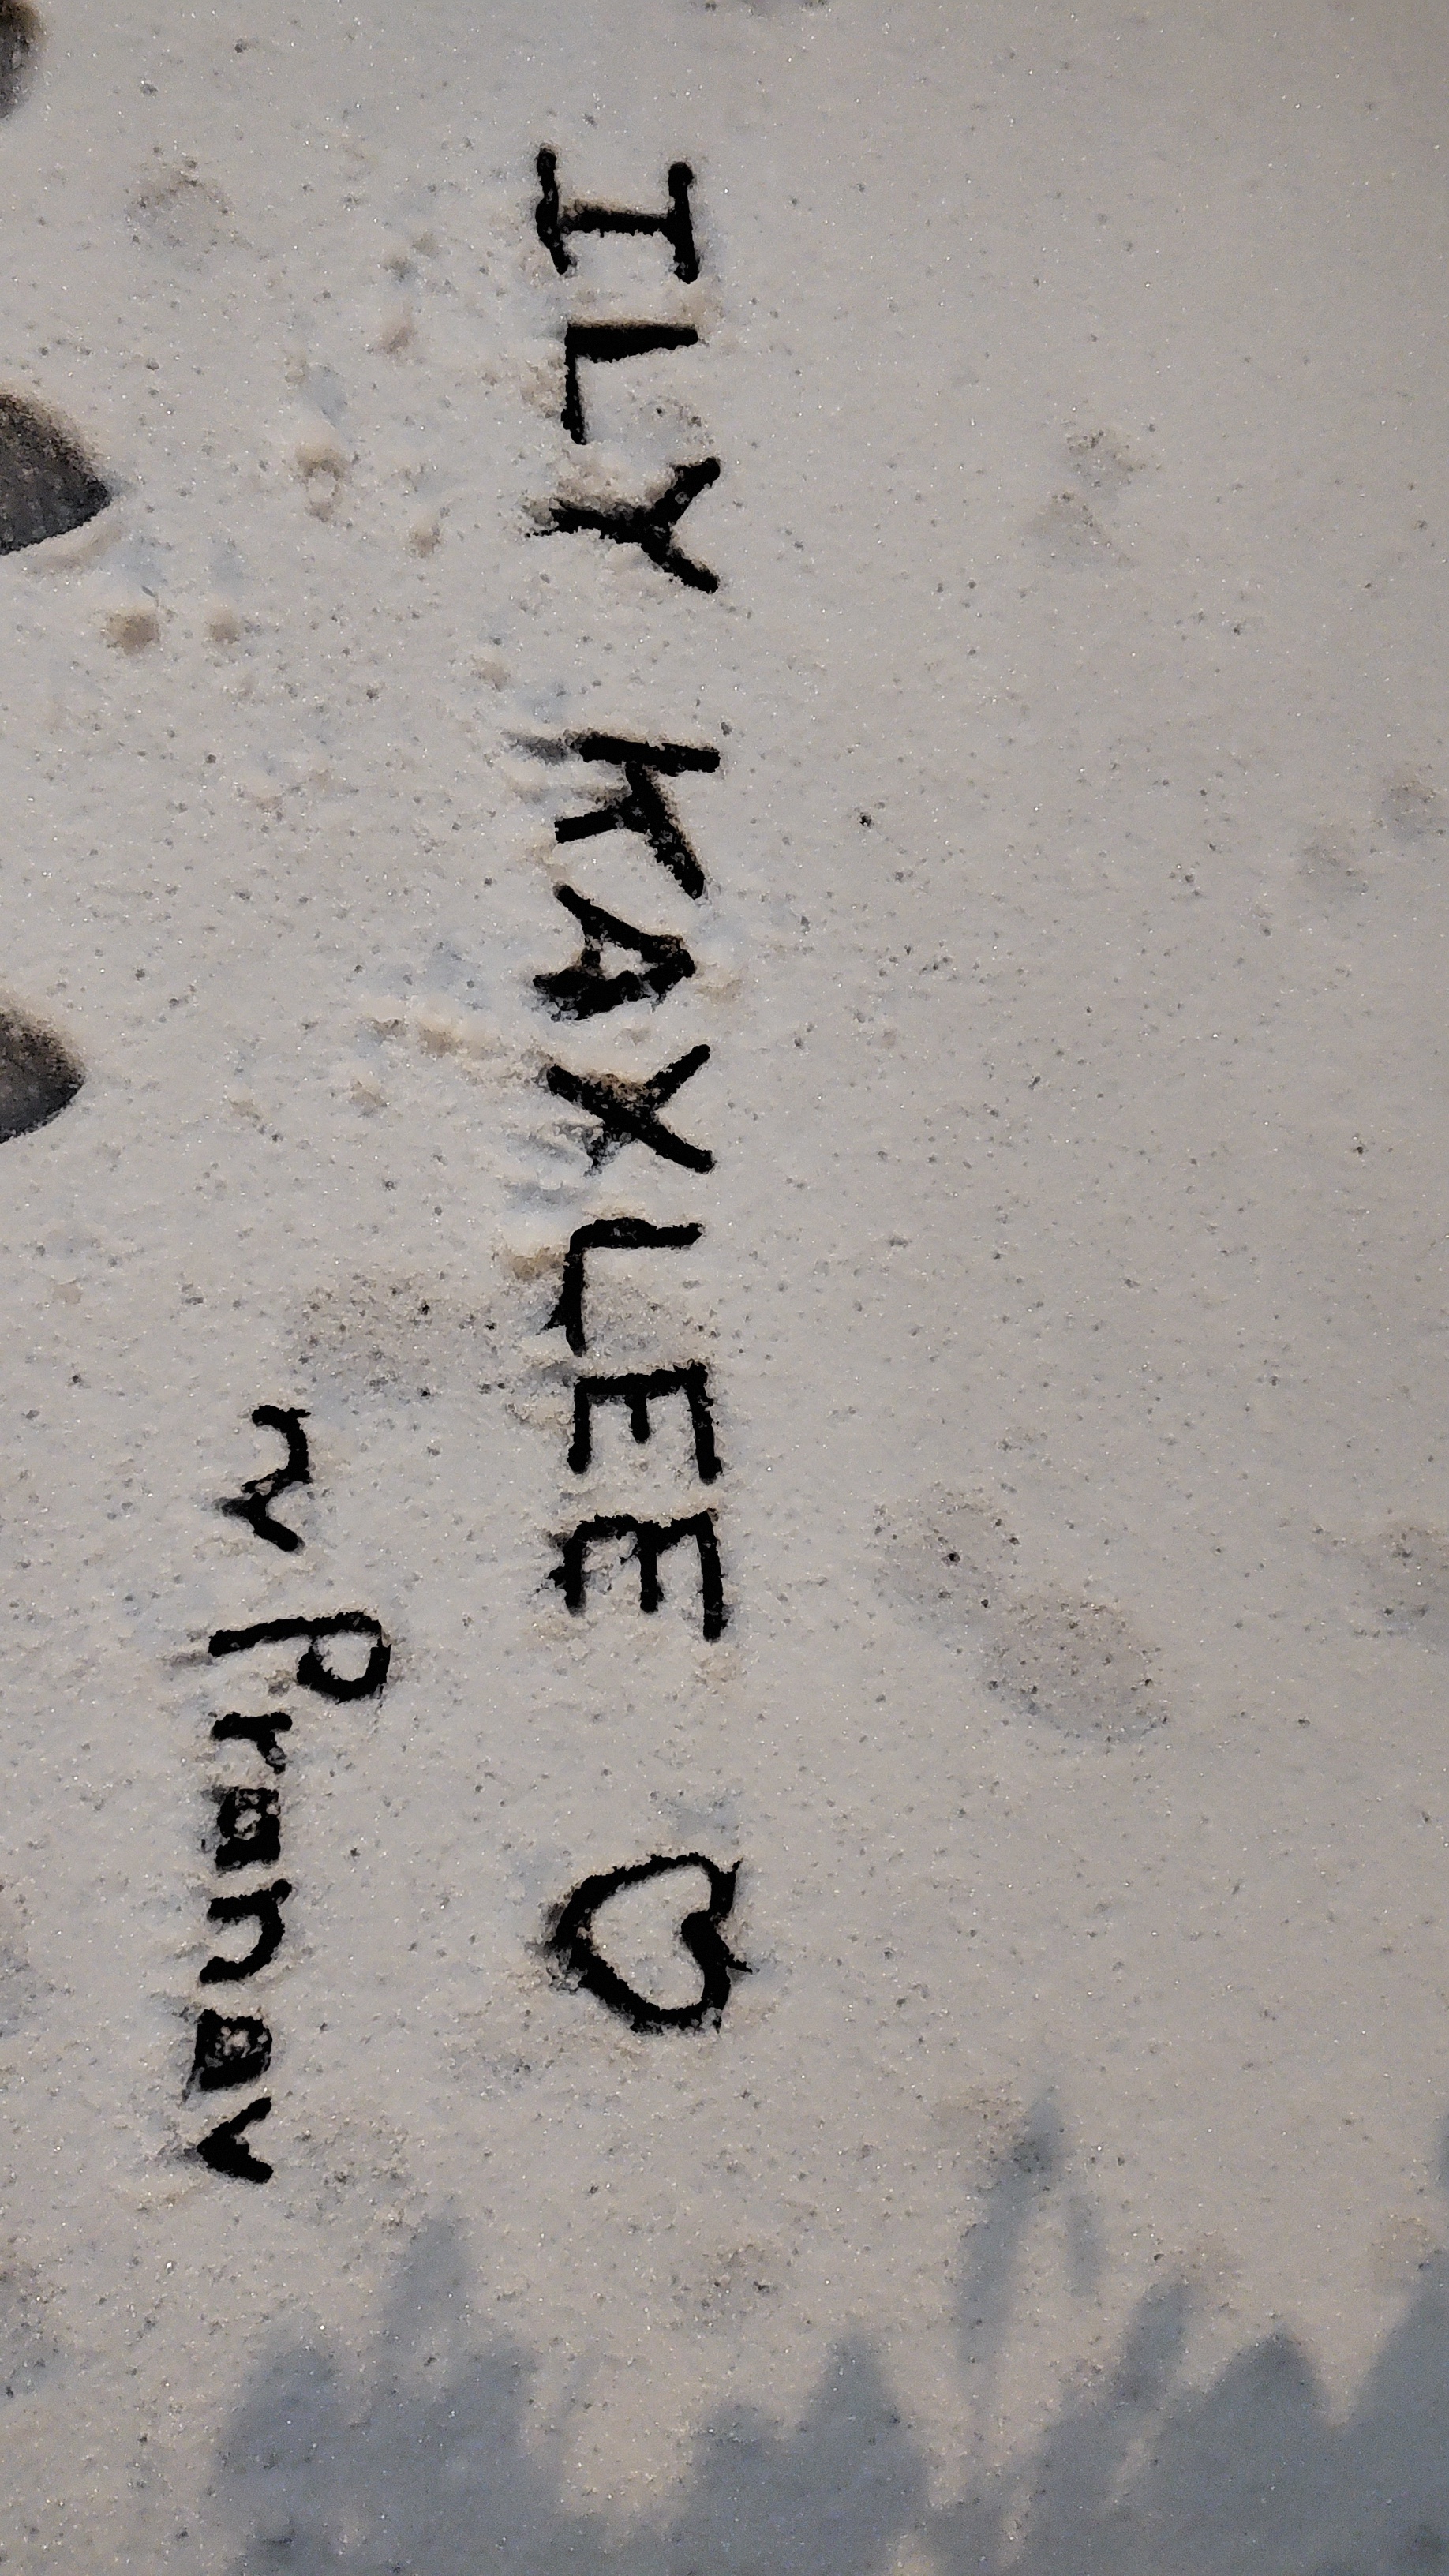 ILY KAXLEE ♡
~ Pranav